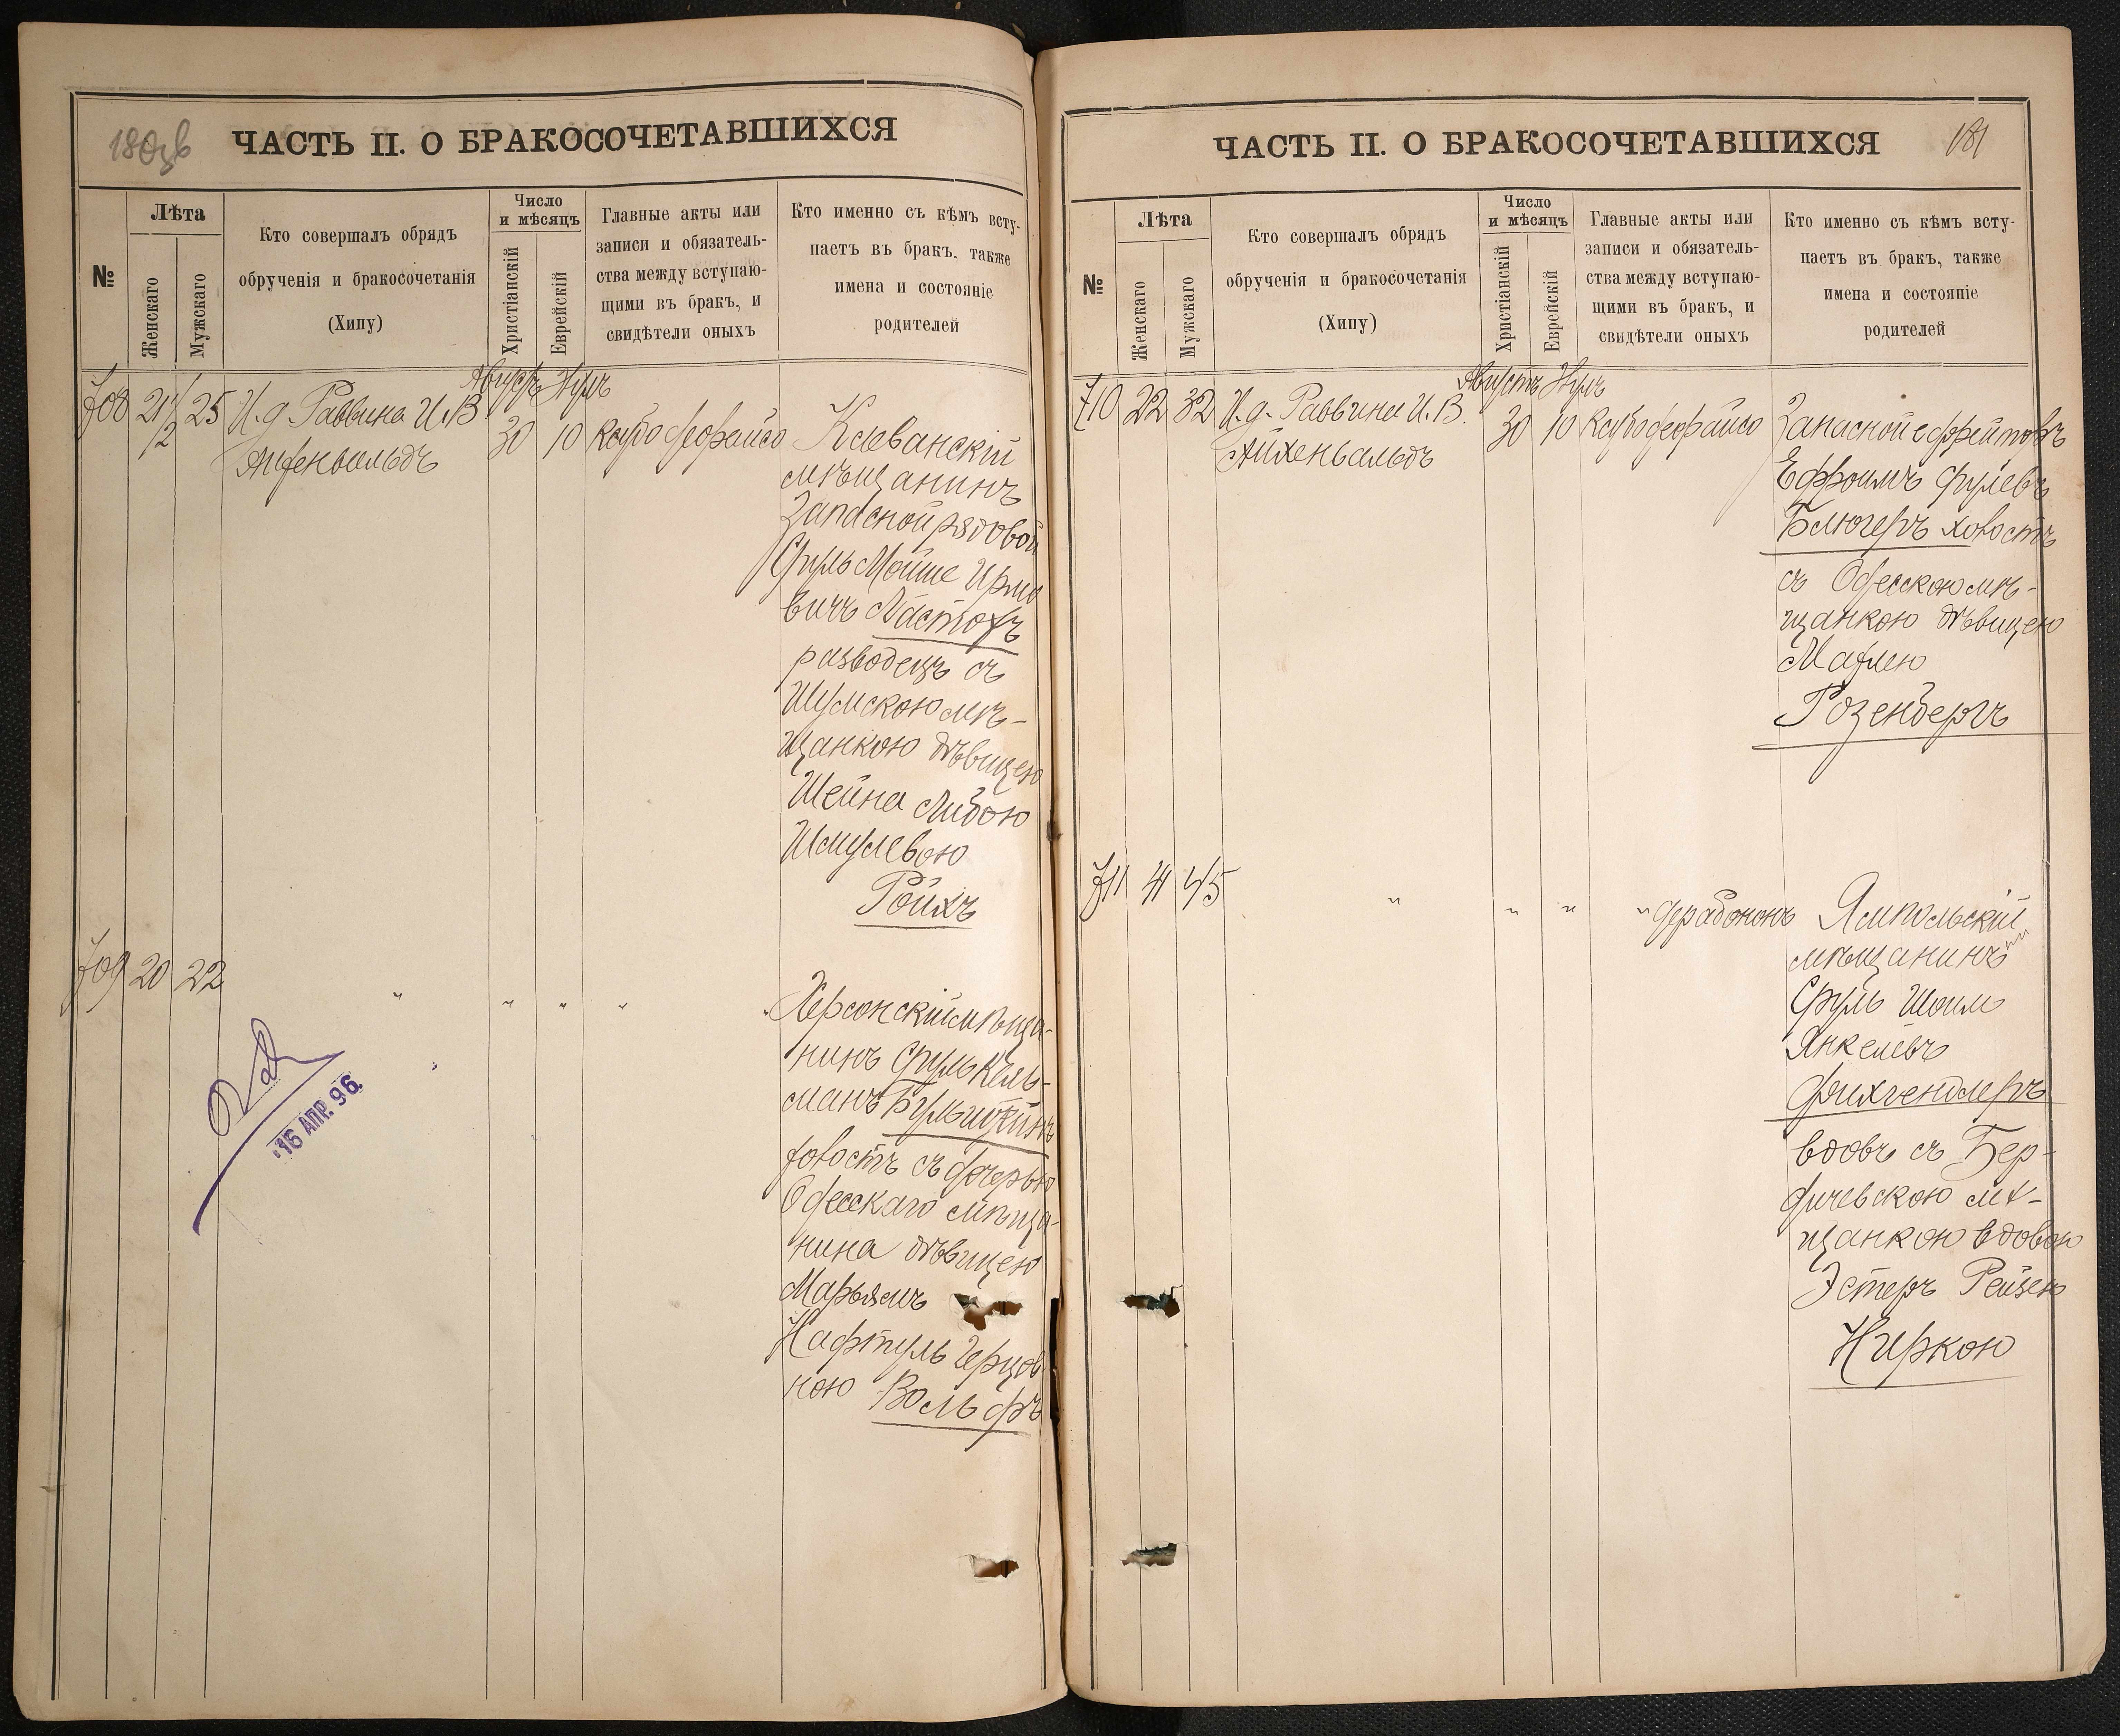 180
ЧАСТЬ II. О БРАКОСОЧЕТАВШИХСЯ
№
Лѣта
Женскаго
Мужскаго
Кто совершалъ обрядъ
обрученія и бракосочетанія
(Хипу)
Число
и мѣсяцъ
Христіанскій
Еврейскій
Главные акты или
записи и обязатель-
ства между вступаю-
щими въ бракъ, и
свидѣтели оныхъ
Кто именно съ кѣмъ всту-
паетъ въ бракъ, также
имена и состояніе
родителей
Августъ
708 21 1/2 25 И. д. Раввина И. В
Айхенвальдъ
30 10
Клеванскій
мѣщанинъ
Запасной рядовой
Сруль Мойше Ирмо
вичъ Ластохъ
разводецъ съ
Шумскою мѣ-
щанкою дѣвицею
Шейна Либою
Шмулевою
Ройхъ
709 20 22 " " " " "
Херсонскій мѣща-
нинъ Сруль Кель-
манъ Бульштейнъ
холостъ съ дочерью
Одесскаго мѣща-
нина дѣвицею
Марьямъ
Нафтуль Герцов
ною Вольфъ
16 АПР. 96.
181
ЧАСТЬ II. О БРАКОСОЧЕТАВШИХСЯ
№
Лѣта
Женскаго
Мужскаго
Кто совершалъ обрядъ
обрученія и бракосочетанія
(Хипу)
Число
и мѣсяцъ
Христіанскій
Еврейскій
Главные акты или
записи и обязатель-
ства между вступаю-
щими въ бракъ, и
свидѣтели оныхъ
Кто именно съ кѣмъ всту-
паетъ въ бракъ, также
имена и состояніе
родителей
Августъ
710 22 32 И. д. Раввина И. В.
Айхенвальдъ
30 10
Запасной ефрейторъ
Ефроимъ
Блюгеръ холостъ
съ Одесскою мѣ-
щанкою дѣвицею
Махлею
Розенбергъ
711 41 45 " " " "
Ямпольскій
мѣщанинъ
Сруль Шоим
Янкелевъ
Фихгендлеръ
вдовъ съ Бер-
дичевскою мѣ-
щанкою вдовою
Эстеръ Рейзею
Ниркою